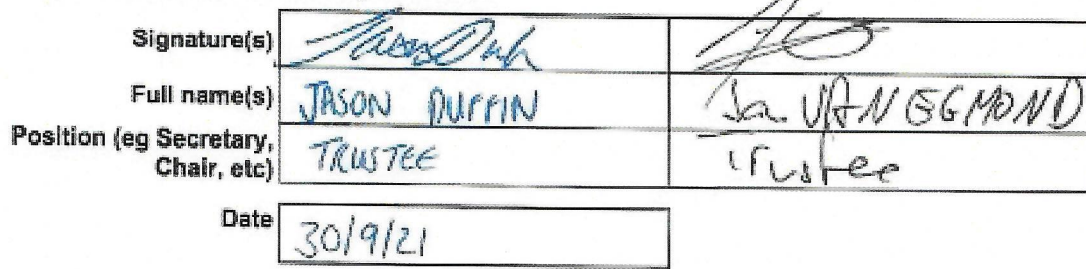 Signature(s)
Full name(s) JASON DUFFIN Jan VAN EGMOND
Position (eg Secretary, Chair, etc) TRUSTEE Trustee
Date 30/9/21